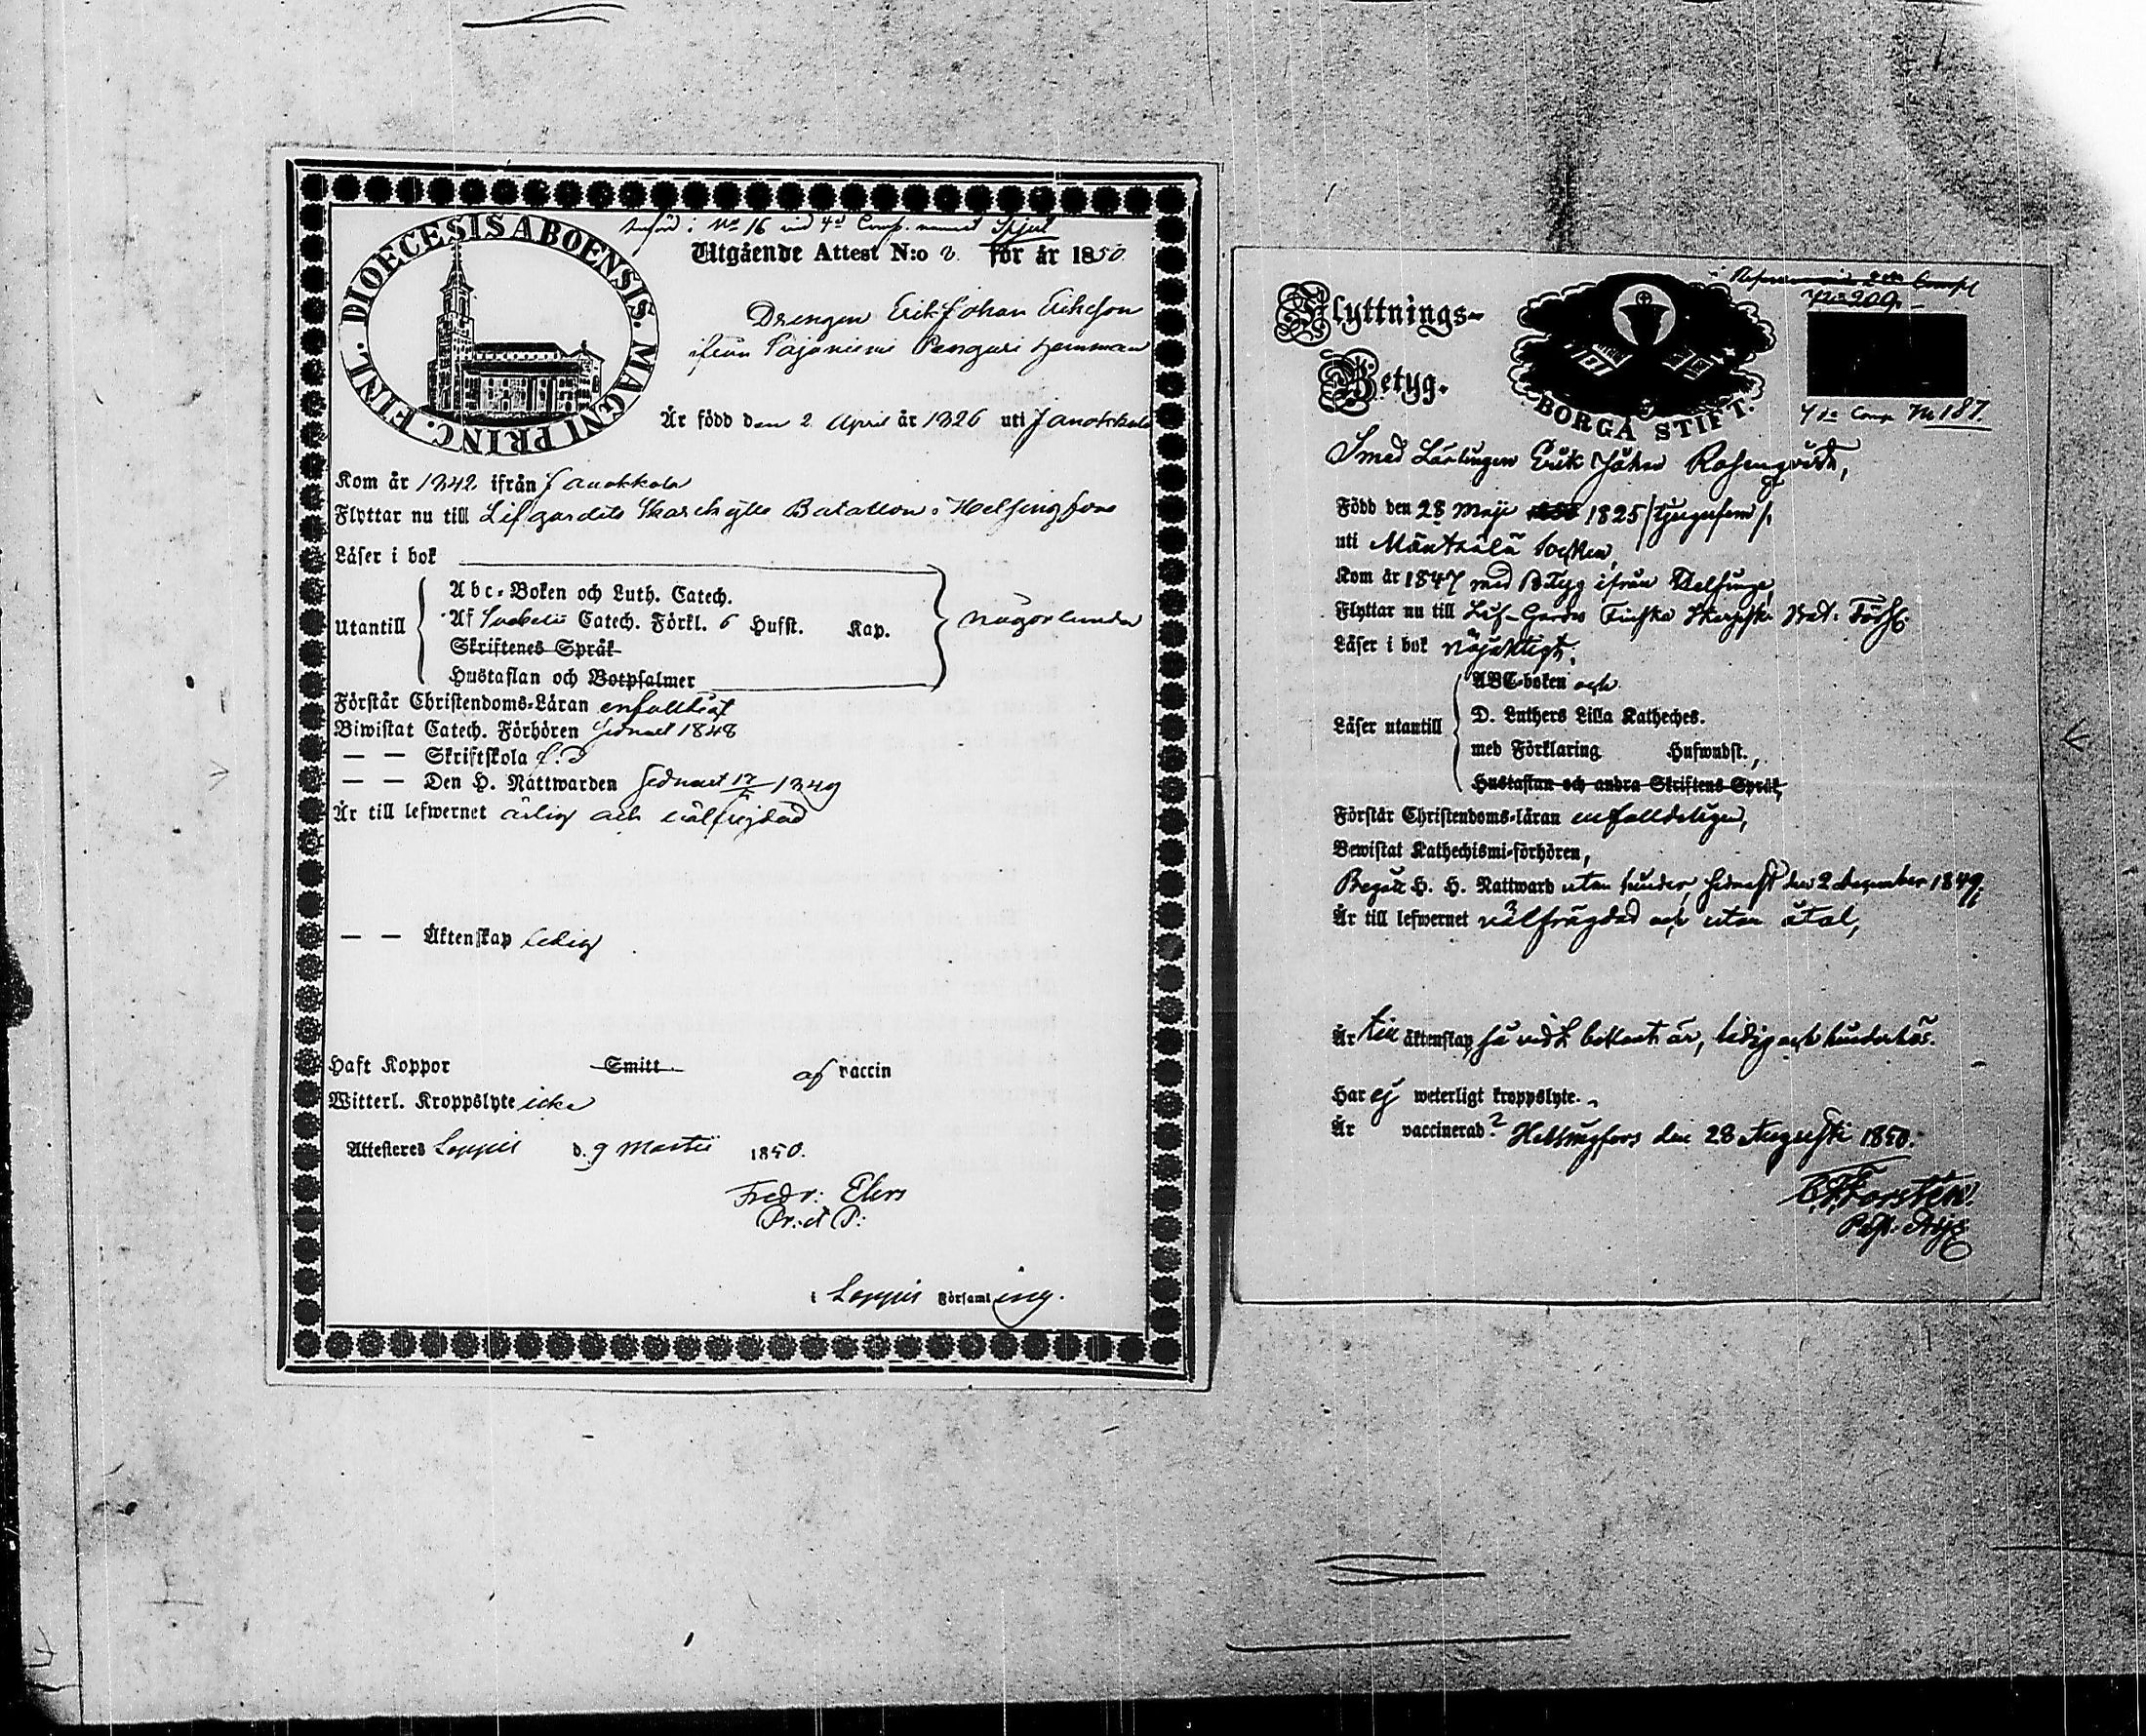 införd i No 16 vid 4de Comp. namnet Spjut
DIOECESIS ABOENSIS. MAGNI PRINC. FINL.
Utgående Attest N:o 2. för år 1850.
Drengen Erik Johan Erikson
ifrån Pajaniemi Pengari hemman
Är född den 2 April år 1826 uti Janakkala
Kom år 1842 ifrån Janakkala
Flyttar nu till Lifgardets Skarskytte Bataillon i Helsingfors
Läser i bok
Utantill
Abc-Boken och Luth. Catech.
Af Svebelii Catech. Förkl. 6 Hufst. Kap.
någorlunda
Skriftenes Språk
Hustaflan och Botpsalmer
Förstår Christendoms-Läran enfalldigt
Biwistat Catech. Förhören sednast 1848
— — Skriftskola
— — Den H. Nattwarden sednast 1849
Är till lefwernet ärlig och välfrejdad
— — Äktenskap ledig
Haft Koppor Smitt af vaccin
Witterl. Kroppslyte icke
Attesteres Loppis d. 9 Martii 1850.
Fredr: Elers
Pr. et P:
i Loppis Församling.
2dra Compt
No 209.
Flyttnings-
Betyg.
BORGÅ STIFT.
4de Comp No 187.
Smed Lärlingen Erik Johan Rosenqvist,
Född den 28 Maji 1825 /tjugufem/.
uti Mäntsälä Socken,
Kom år 1847 med Betyg ifrån Helsinge,
Flyttar nu till Lif-Gardets Finska Skarpsk. Bat. Förs.
Läser i bok nöjaktigt,
Läser utantill
ABC-boken och
D. Luthers Lilla Katheches.
med Förklaring Hufwudst.,
Hustaflan och andra Skriftens Språk,
Förstår Christendoms-läran enfalldeligen,
Bewistat Kathechismi-förhören,
Begått H. H. Nattward utan hinder, sednast den 2 december 1849,
Är till lefwernet välfrägdad och utan åtal,
Är till äktenskap så vidt bekant är, ledig och hinderlös.
Har ej weterligt kroppslyte.
Är vaccinerad? Helsingfors den 28 Augusti 1850.
Forstén.